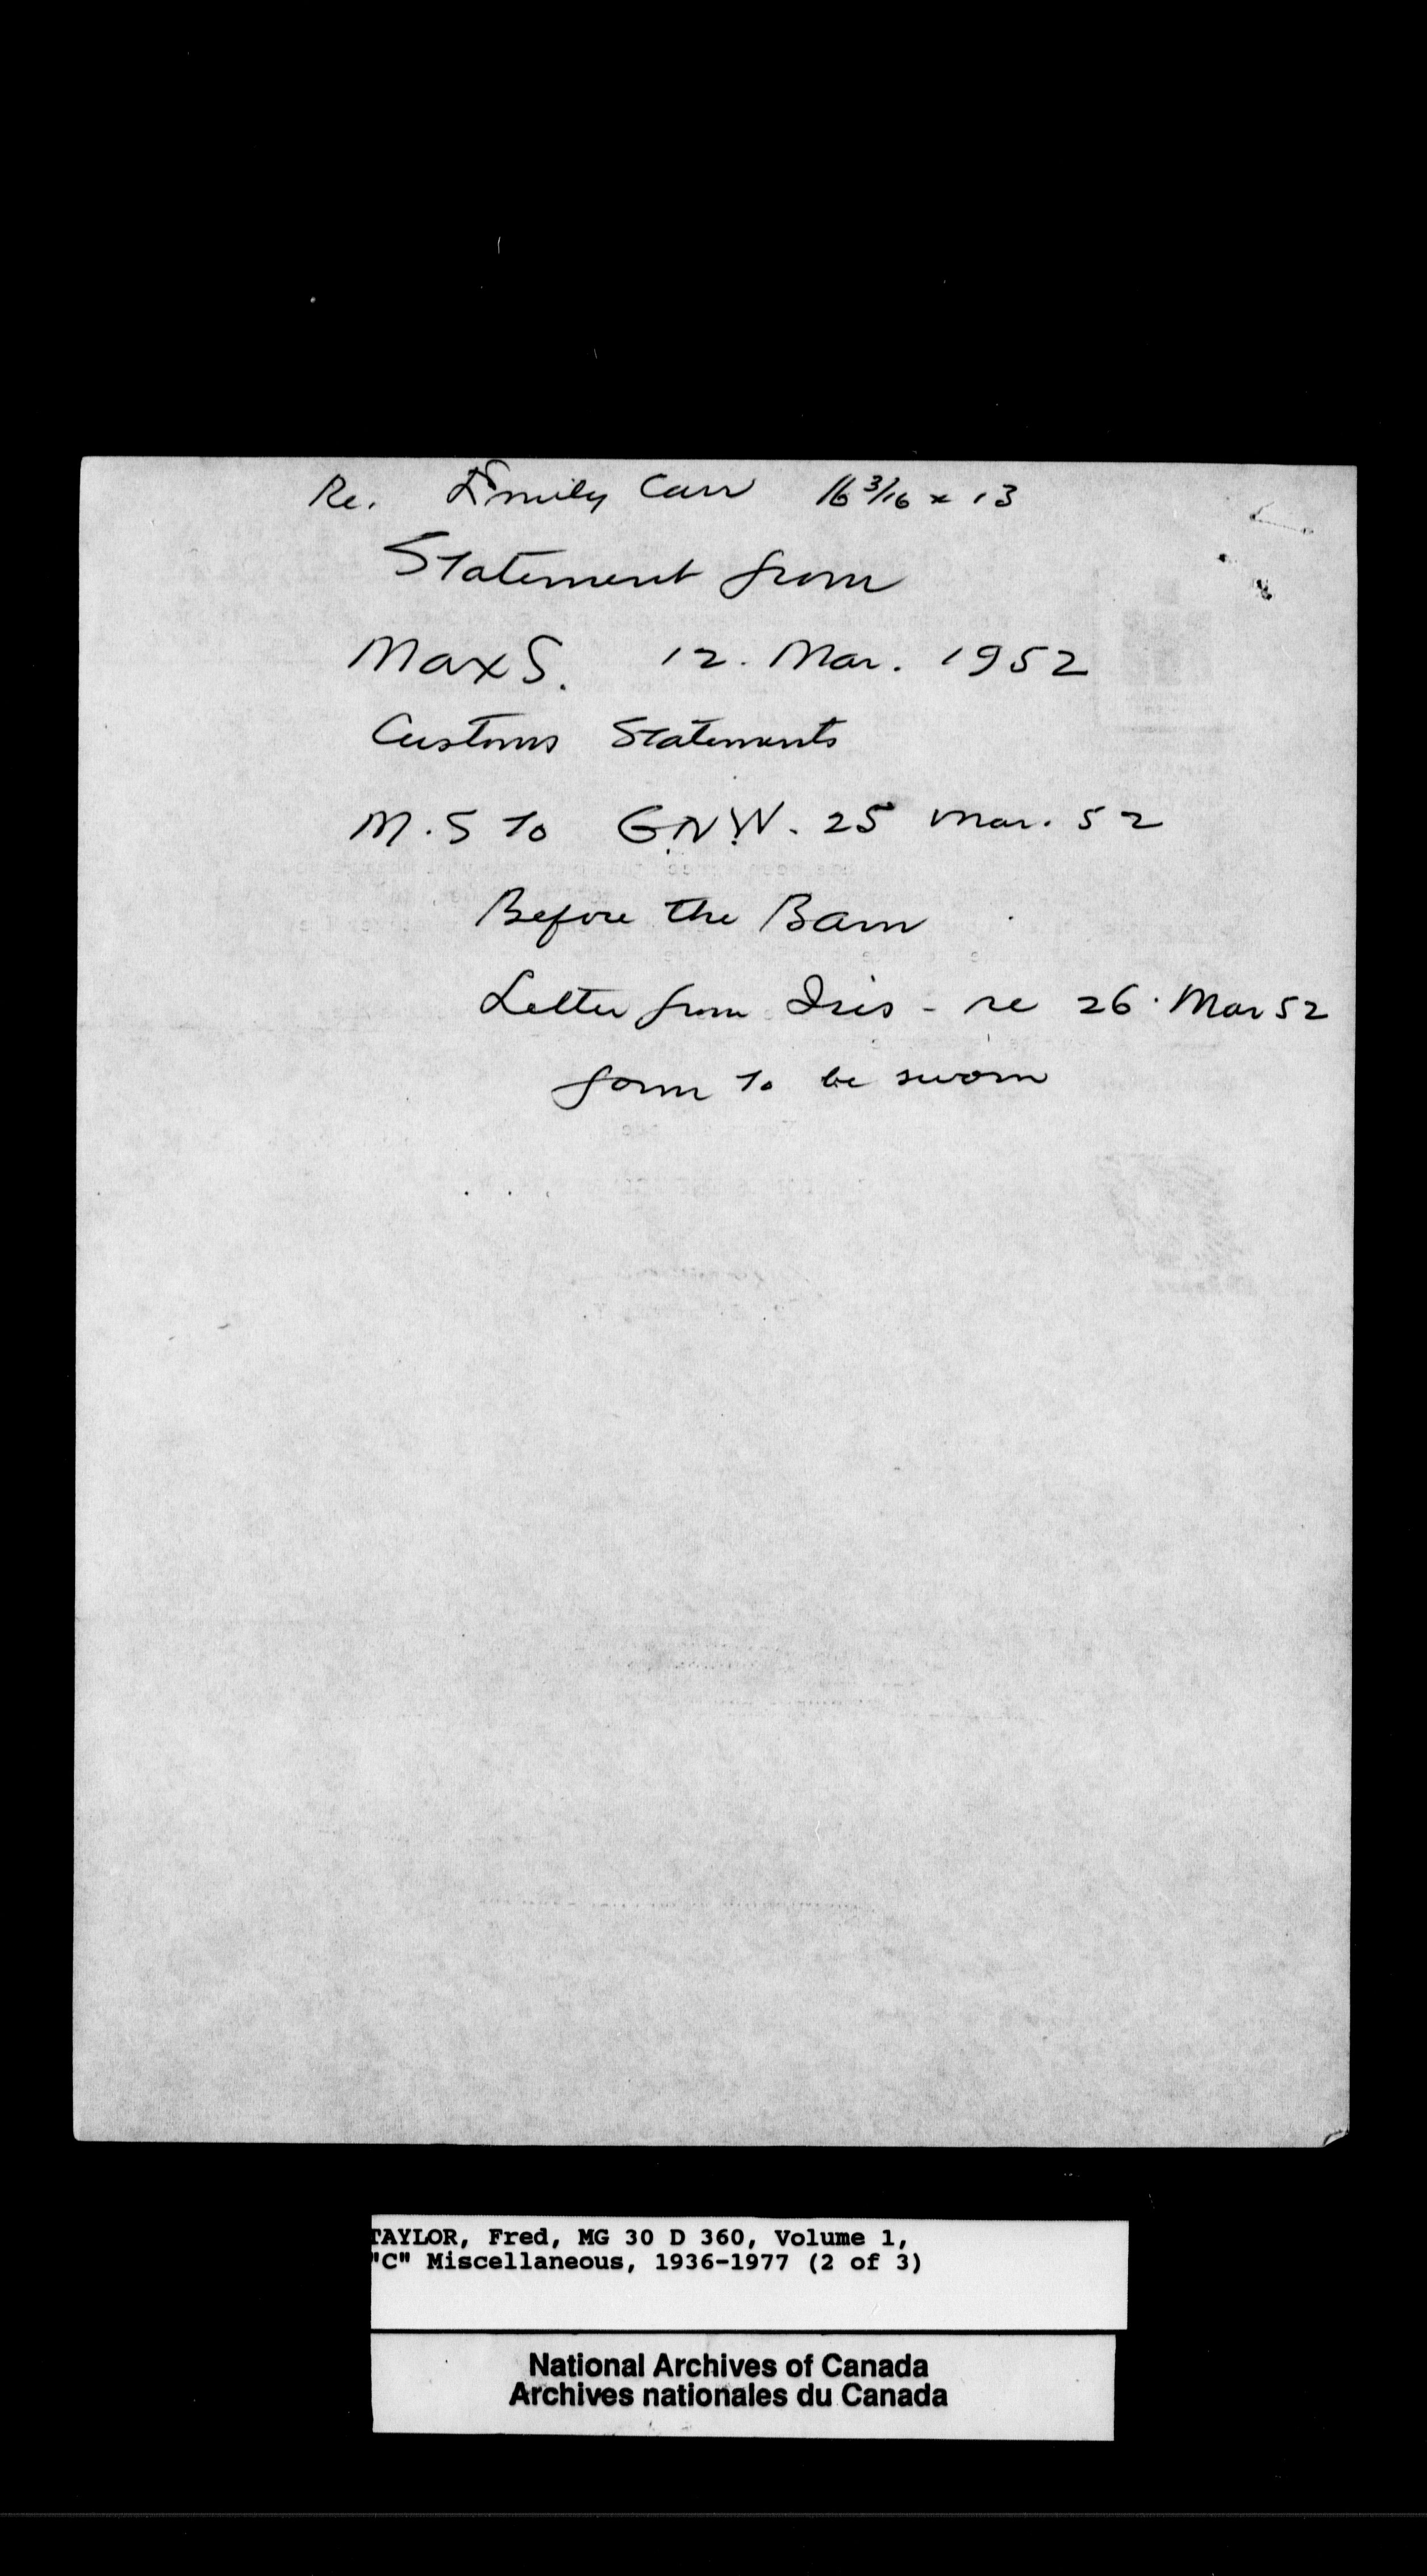 Re. Emily Carr 16 3/16 x 13
Statement from
Max S. 12. Mar. 1952
Customs Statements
M.S to G.N.W. 25 Mar. 52
Before the Barn
Letter from Iris - re 26. Mar 52
form to be sworn
TAYLOR, Fred, MG 30 D 360, Volume 1,
"C" Miscellaneous, 1936-1977 (2 of 3)
National Archives of Canada
Archives nationales du Canada